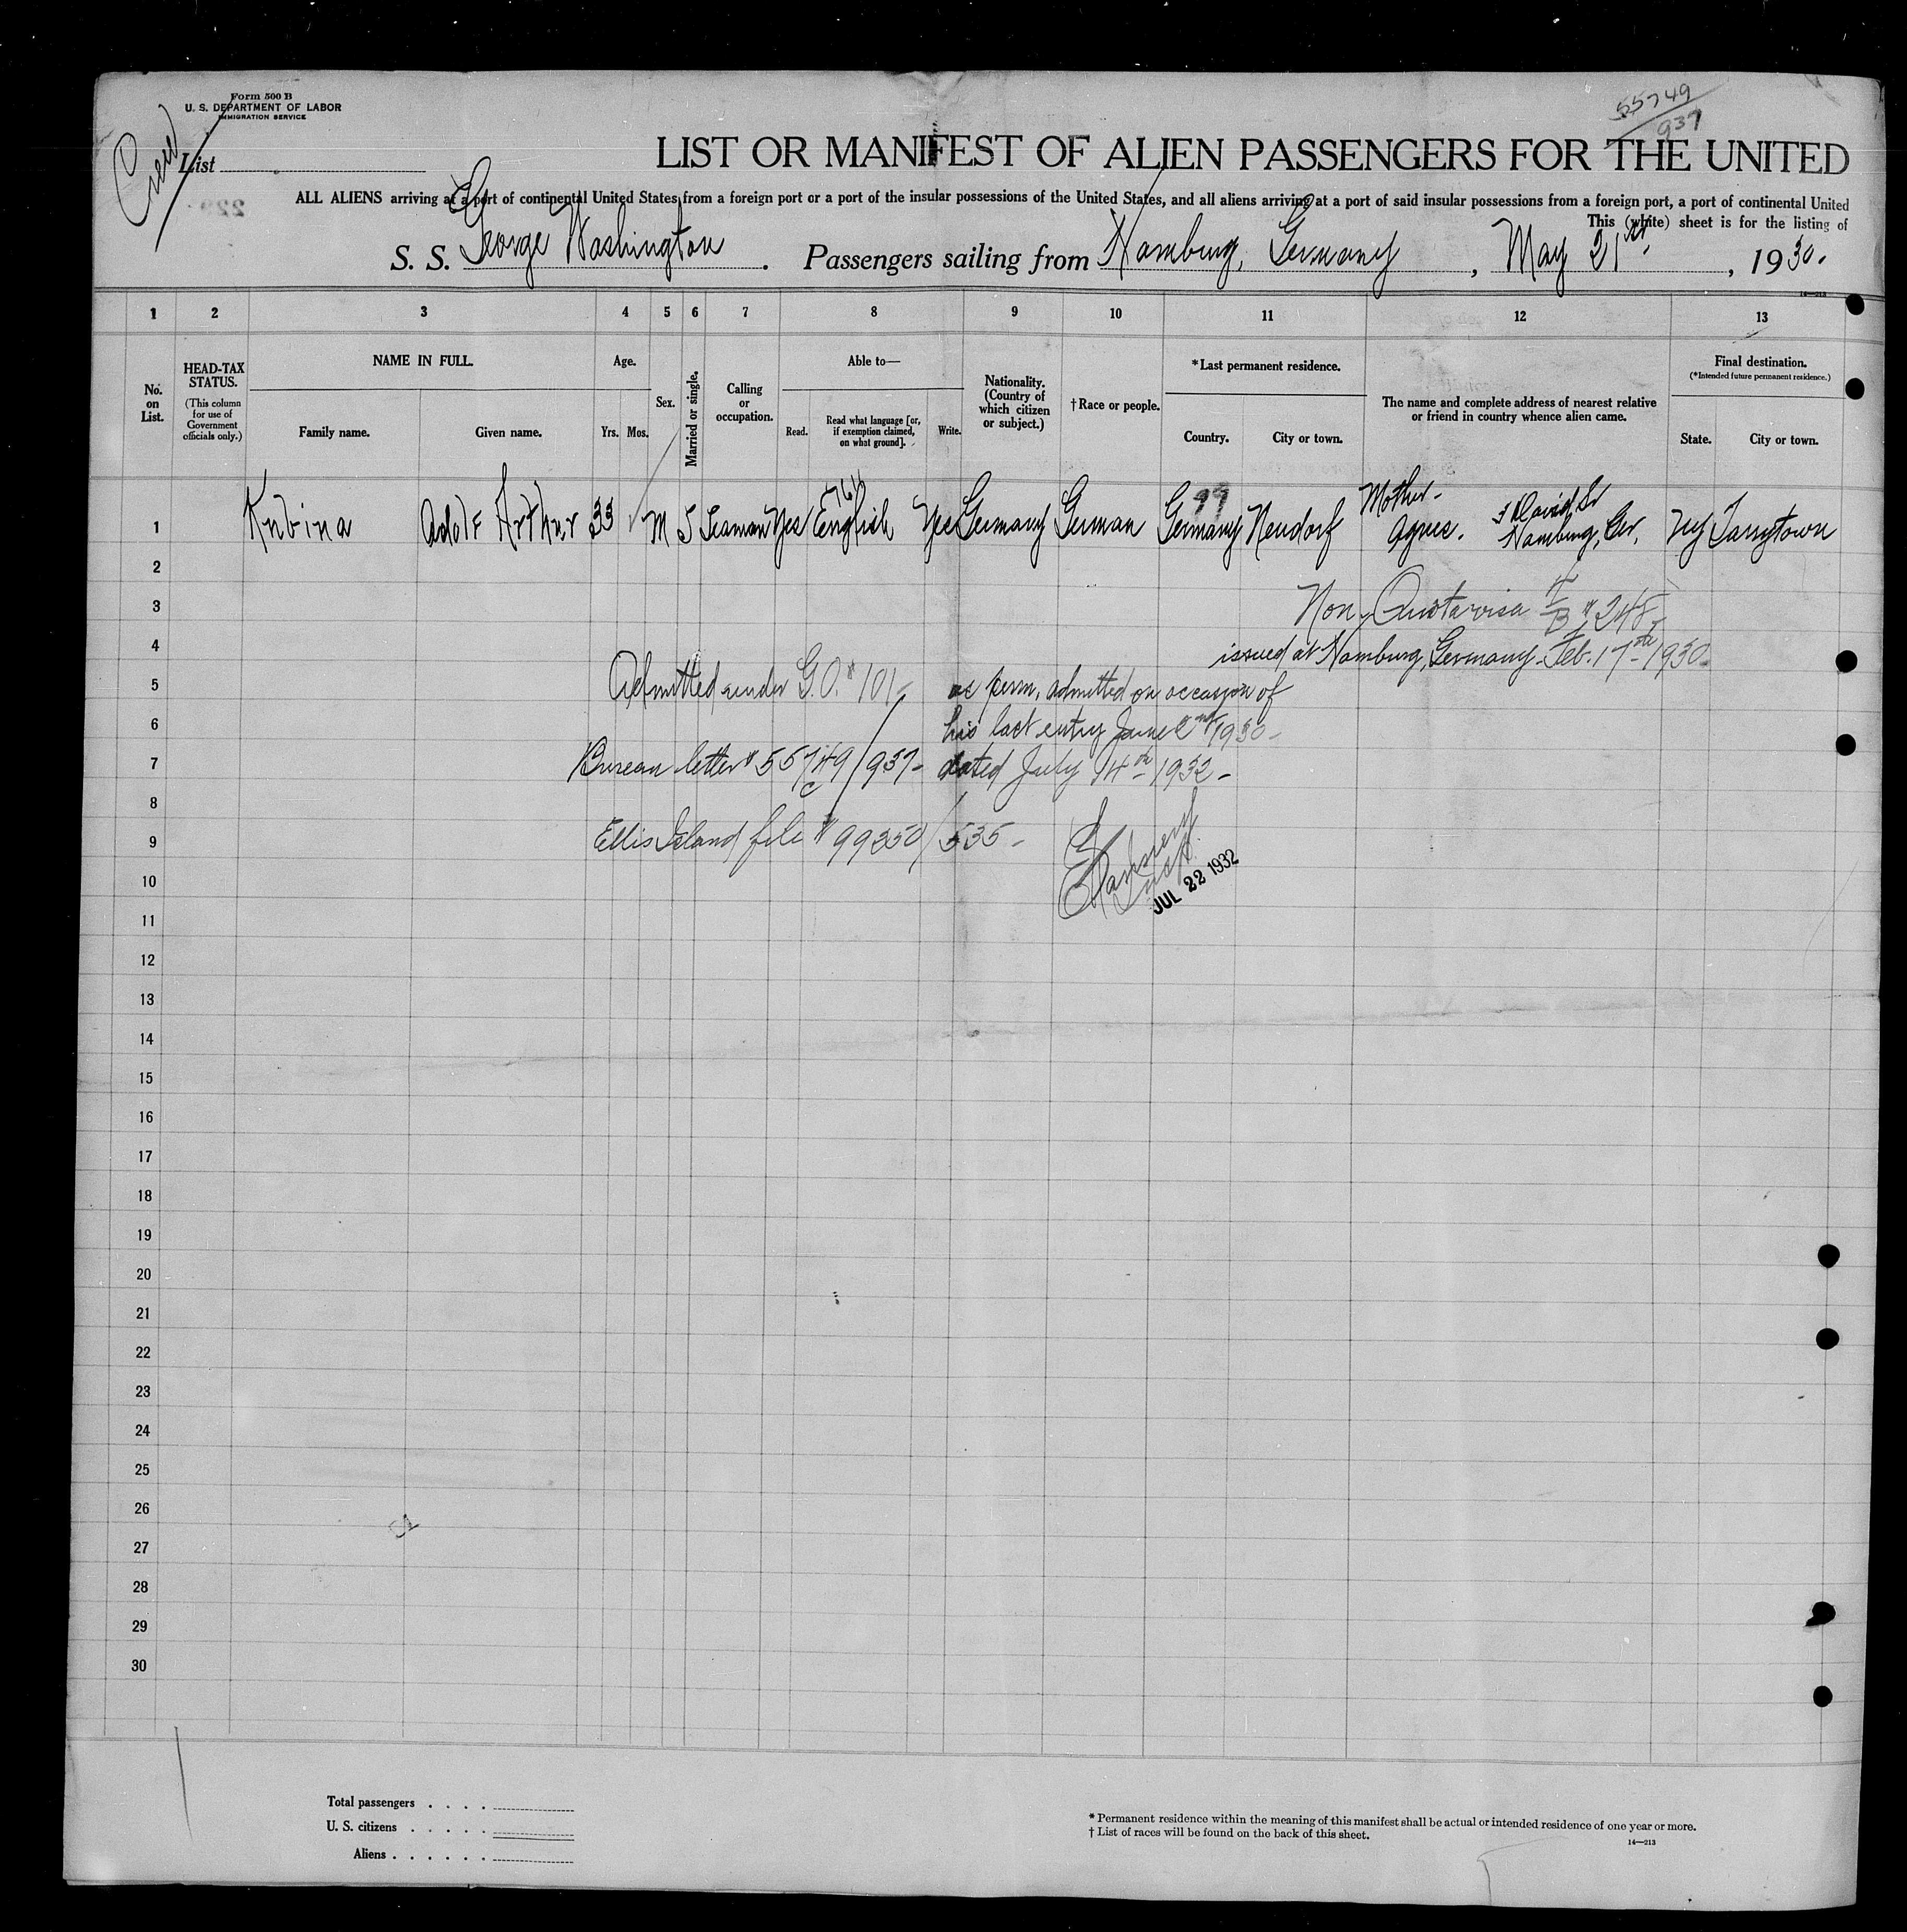 Form 500 B
U. S. DEPARTMENT OF LABOR
IMMIGRATION SERVICE
Crew
List
55749
937
LIST OR MANIFEST OF ALIEN PASSENGERS FOR THE UNITED
ALL ALIENS arriving at a port of continental United States from a foreign port or a port of the insular possessions of the United States, and all aliens arriving at a port of said insular possessions from a foreign port, a port of continental United
This (white) sheet is for the listing of
S. S. George Washington. Passengers sailing from Hamburg, Germany, May 21st, 1930.
14—213
1 2 3 4 5 6 7 8 9 10 11 12 13
No. on List.
HEAD-TAX STATUS.
(This column for use of Government officials only.)
NAME IN FULL.
Family name. Given name.
Age.
Yrs. Mos.
Sex.
Married or single.
Calling or occupation.
Able to—
Read. Read what language [or, if exemption claimed, on what ground]. Write.
Nationality. (Country of which citizen or subject.)
†Race or people.
*Last permanent residence.
Country. City or town.
The name and complete address of nearest relative or friend in country whence alien came.
Final destination.
(*Intended future permanent residence.)
State. City or town.
1 Kubina Adolf Arthur 33 M S Seaman Yes English Yes Germany German Germany Neudorf Mother- Agnes. David Hamburg, Ger. NY Tarrytown
99
2
3 Non-Quota visa #248
4 issued at Hamburg, Germany. Feb. 17th 1930
5 Admitted under G.O. #101- as perm. admitted on occasion of
6 his last entry June 1930-
7 Bureau letter # 55749/937- dated July 14th 1932-
8
9 Ellis Island file # 99350/535-
10
Insp.
JUL 22 1932
11
12
13
14
15
16
17
18
19
20
21
22
23
24
25
26
27
28
29
30
Total passengers . . . .
U. S. citizens . . . . .
Aliens . . . . . .
* Permanent residence within the meaning of this manifest shall be actual or intended residence of one year or more.
† List of races will be found on the back of this sheet.
14—213